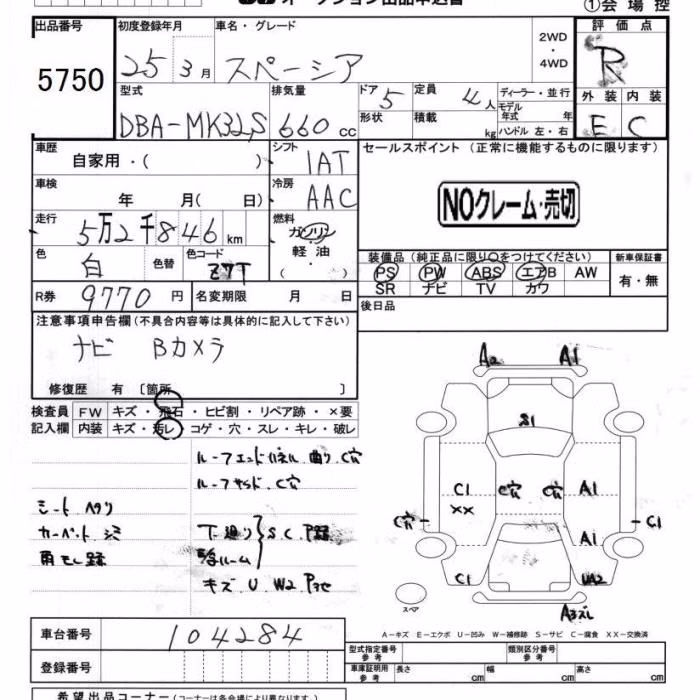 オークション出品申込書
①会場控
出品番号
5750
初度登録年月
25 3月
車名・グレード
スペーシア
2WD
・
4WD
評価点
R
外装 内装
E C
型式
DBA-MK32S
排気量
660 cc
ドア 5
形状
定員 4人
積載 kg
ディーラー・並行
モデル年式 年
ハンドル 左・右
車歴
自家用・( )
シフト
IAT
セールスポイント(正常に機能するものに限ります)
NOクレーム・売切
車検
年 月( 日)
冷房
AAC
走行
5万2千846 km
燃料
ガソリン
軽油
・
( )
色
白
色替
色コード
Z7T
装備品(純正品に限り○をつけてください)
PS PW ABS エアB AW
SR ナビ TV カワ
新車保証書
有・無
R券 9770円
名変期限 月 日
後日品
注意事項申告欄(不具合内容等は具体的に記入して下さい)
ナビ Bカメラ
修復歴 有〔箇所 〕
検査員記入欄
FW キズ・飛石・ヒビ割・リペア跡・×要
内装 キズ・汚レ・コゲ・穴・スレ・キレ・破レ
ルーフエンドパネル 曲り C穴
ルーフサイド C穴
シート ヘタリ
カーペット シミ
雨モレ跡
下廻り
ルーム
S.C.P跡
キズ U W2
A2 A1
S1
C1
XX
C穴 C穴
A1
C穴
C1
A1
C1
UA2
スペア
A3ズレ
A-キズ E-エクボ U-凹み W-補修跡 S-サビ C-腐食 XX-交換済
車台番号
104284
登録番号
型式指定番号 参考
類別区分番号 参考
車庫証明用 参考
長さ cm 幅 cm 高さ cm
希望出品コーナー(コーナーは各会場により異なります)